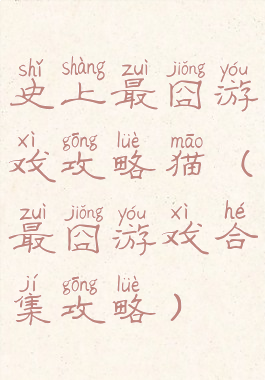 shǐ shàng zuì jiǒng yóu
史上最囧游
xì gōng lüè māo
戏攻略猫（
zuì jiǒng yóu xì hé
最囧游戏合
jí gōng lüè
集攻略）